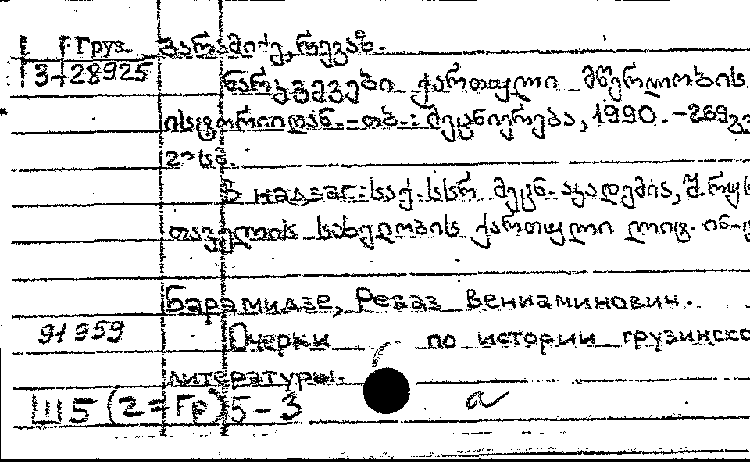 Груз. ბარამიძე, რევაზ.
3-28925 ნარკვევები ქართული მწერლობის
ისტორიიდან. -თბ.: მეცნიერება, 1990. -269გვ
22 სმ.
В надзаг.: საქ. სსრ მეცნ. აკადემია, შ. რუს
თაველის სახელობის ქართული ლიტ. ინ-ტ
Барамидзе, Реваз Вениаминович.
91959 Очерки по истории грузинско
литературы.
Ш5(2=Гр)5-3 a